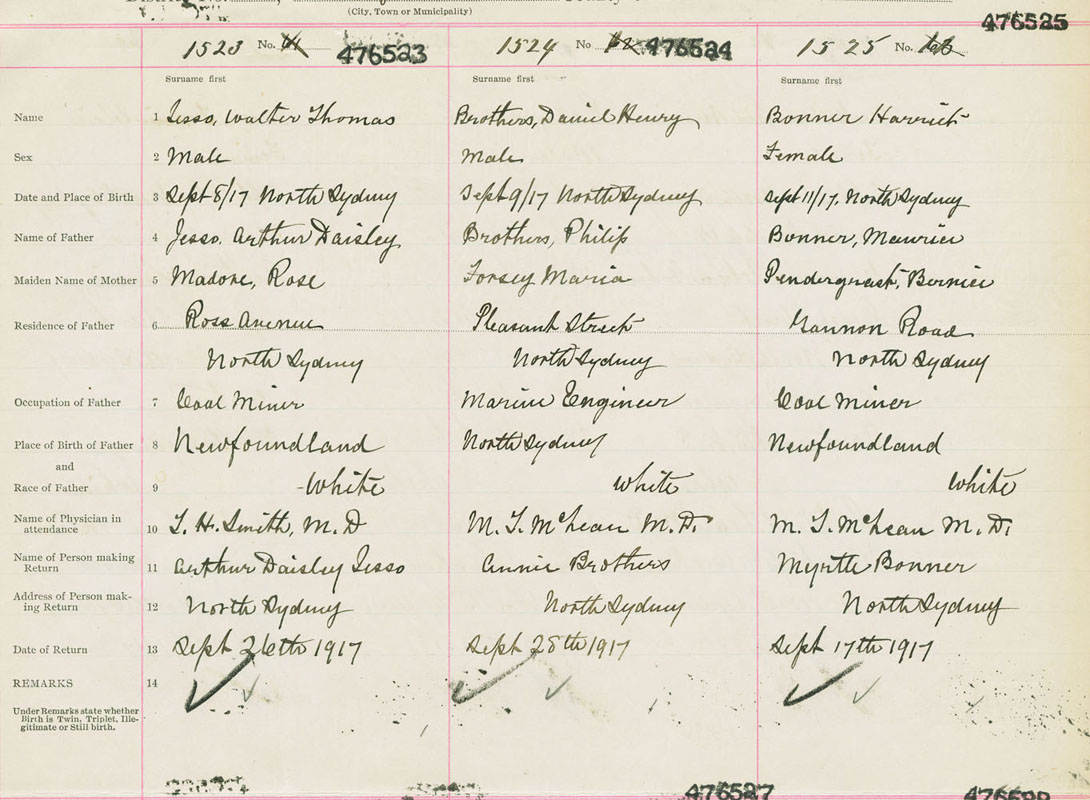 (City, Town or Municipality)
476525
1523 No. 476523 1524 No 476524 1525 No.
Surname first Surname first Surname first
Name 1 Jesso, Walter Thomas Brothers, Daniel Henry Bonner Harriet
Sex 2 Male Male Female
Date and Place of Birth 3 Sept 8/17 North Sydney Sept 9/17 North Sydney Sept 11/17, North Sydney
Name of Father 4 Jesso. Arthur Daisley Brothers, Philip Bonner, Maurice
Maiden Name of Mother 5 Madore, Rose Forsey Maria Pendergrast, Bernice
Residence of Father 6 Ross Avenue Pleasant Street Gannon Road
North Sydney North Sydney North Sydney
Occupation of Father 7 Coal Miner Marine Engineer Coal Miner
Place of Birth of Father 8 Newfoundland North Sydney Newfoundland
and
Race of Father 9 White White White
Name of Physician in
attendance 10 L. H. Smith, M. D M. T. McLean M. D. M. T. McLean M. D.
Name of Person making
Return 11 Arthur Daisley Jesso Annie Brothers Myrtle Bonner
Address of Person mak-
ing Return 12 North Sydney North Sydney North Sydney
Date of Return 13 Sept 26th 1917 Sept 28th 1917 Sept 17th 1917
REMARKS 14
Under Remarks state whether
Birth is Twin, Triplet, Ille-
gitimate or Still birth.
476527